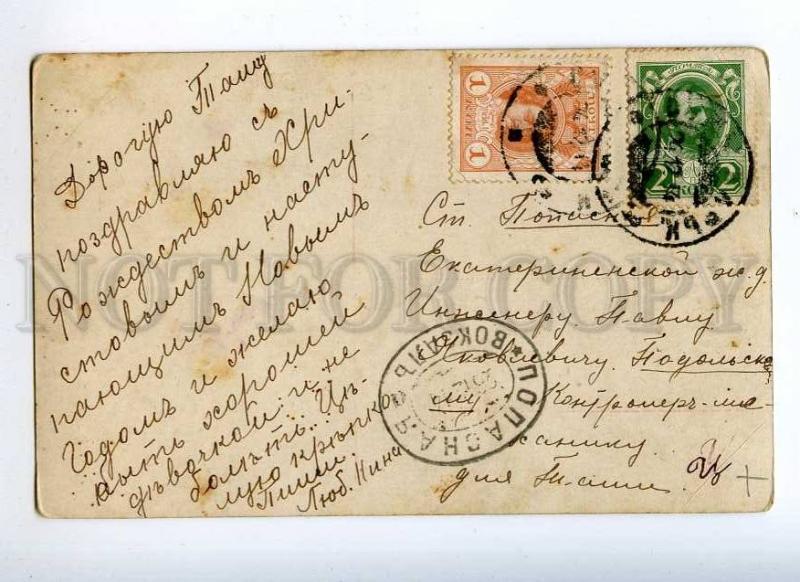 Дорогую Тату
поздравляю съ
Рождествомъ Хри-
стовымъ и насту-
пающимъ Новымъ
Годомъ и желаю
быть хорошей
дѣвочкой и не
болѣть. Цѣ-
лую крѣпко
Пиши.
Люб. Нина
1
1
1
2
2
Ст. Попасная
Екатериненской ж.д.
Инженеру Павлу
Яковлевичу Подольско-
му Контролеръ-ме-
ханику
для Таты
ПОПАСНАЯ
ВОКЗАЛЪ
NOT FOR COPY